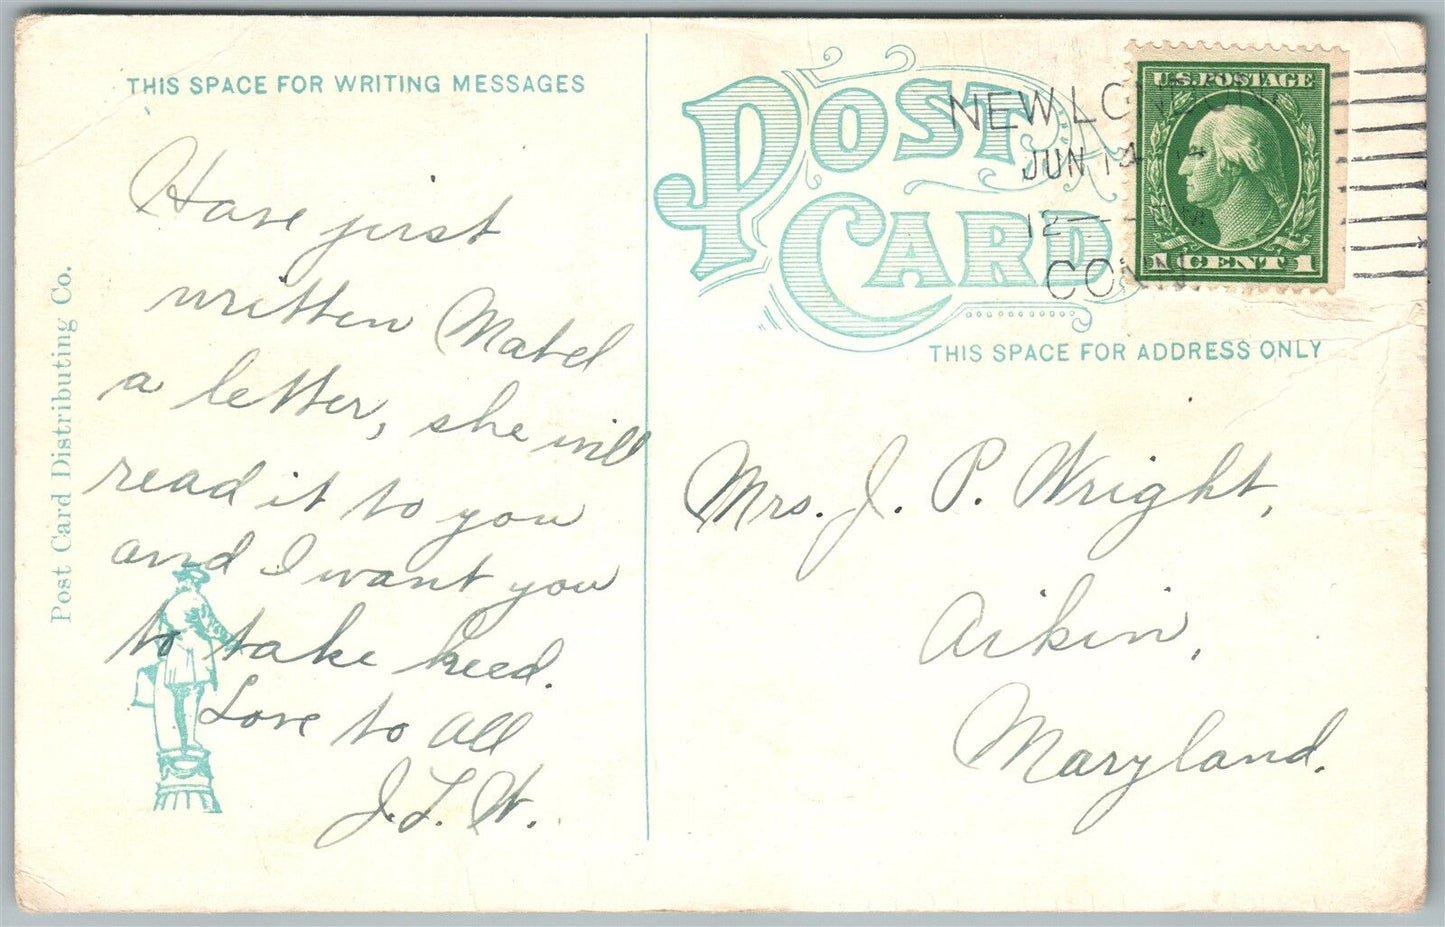 THIS SPACE FOR WRITING MESSAGES
Have just
written Mabel
a letter, she will
read it to you
and I want you
to take heed.
Love to all
J. L. W.
Post Card Distributing Co.
POST
CARD
NEW LONDON
JUN 14
12
CONN.
U.S. POSTAGE
1 CENT 1
THIS SPACE FOR ADDRESS ONLY
Mrs. J. P. Wright,
Aikin,
Maryland.